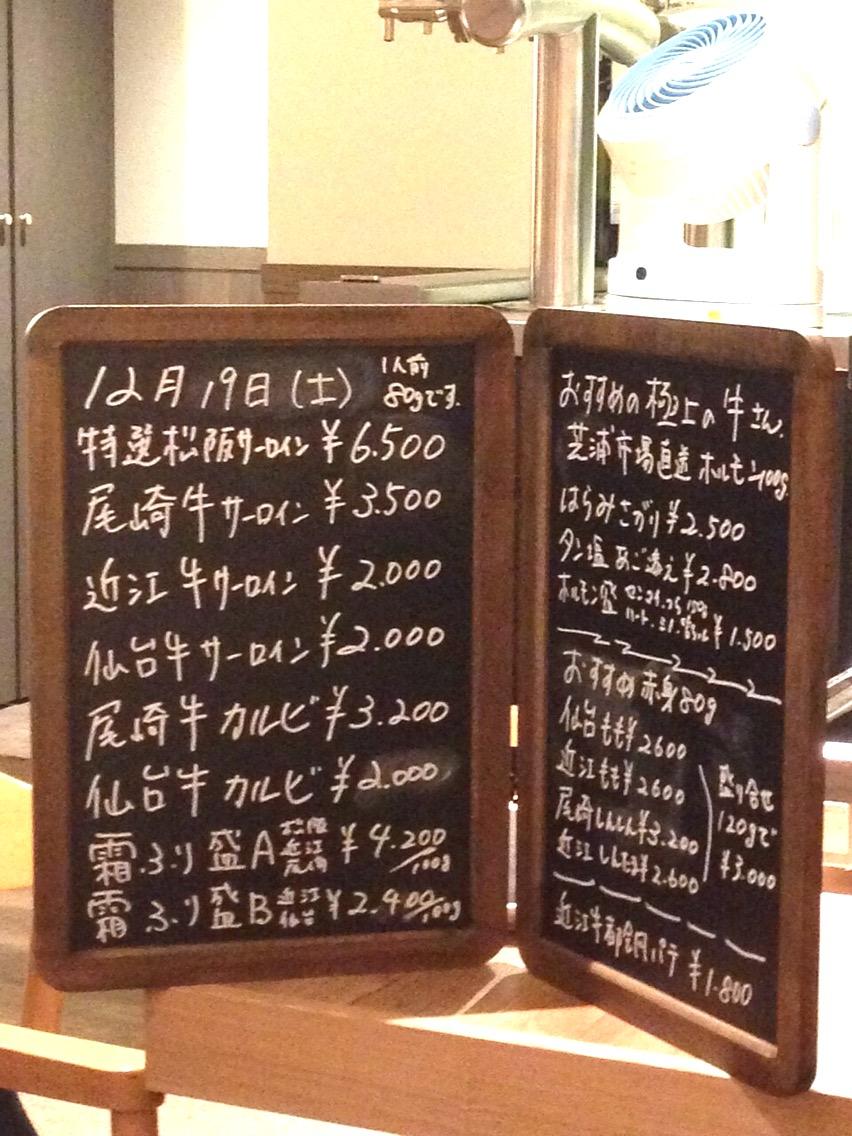 12月19日(土) 1人前
80gです.
特選松阪サーロイン ¥6.500
尾崎牛サーロイン ¥3.500
近江牛サーロイン ¥2.000
仙台牛サーロイン ¥2.000
尾崎牛カルビ ¥3.200
仙台牛カルビ ¥2.000
霜ふり盛A 松阪 近江 尾崎 ¥4.200/100g
霜ふり盛B 近江 仙台 ¥2.900/100g
おすすめの極上の牛さん.
芝浦市場直送ホルモン100g
はらみさがり ¥2.500
タン塩あご添え ¥2.800
ホルモン盛 ¥1.500
おすすめ赤身80g
仙台もも ¥2600
近江もも ¥2600
尾崎しんしん ¥3.200
近江しんたま ¥2.600
盛り合せ
120gで
¥3.000
近江牛 パテ ¥1.800